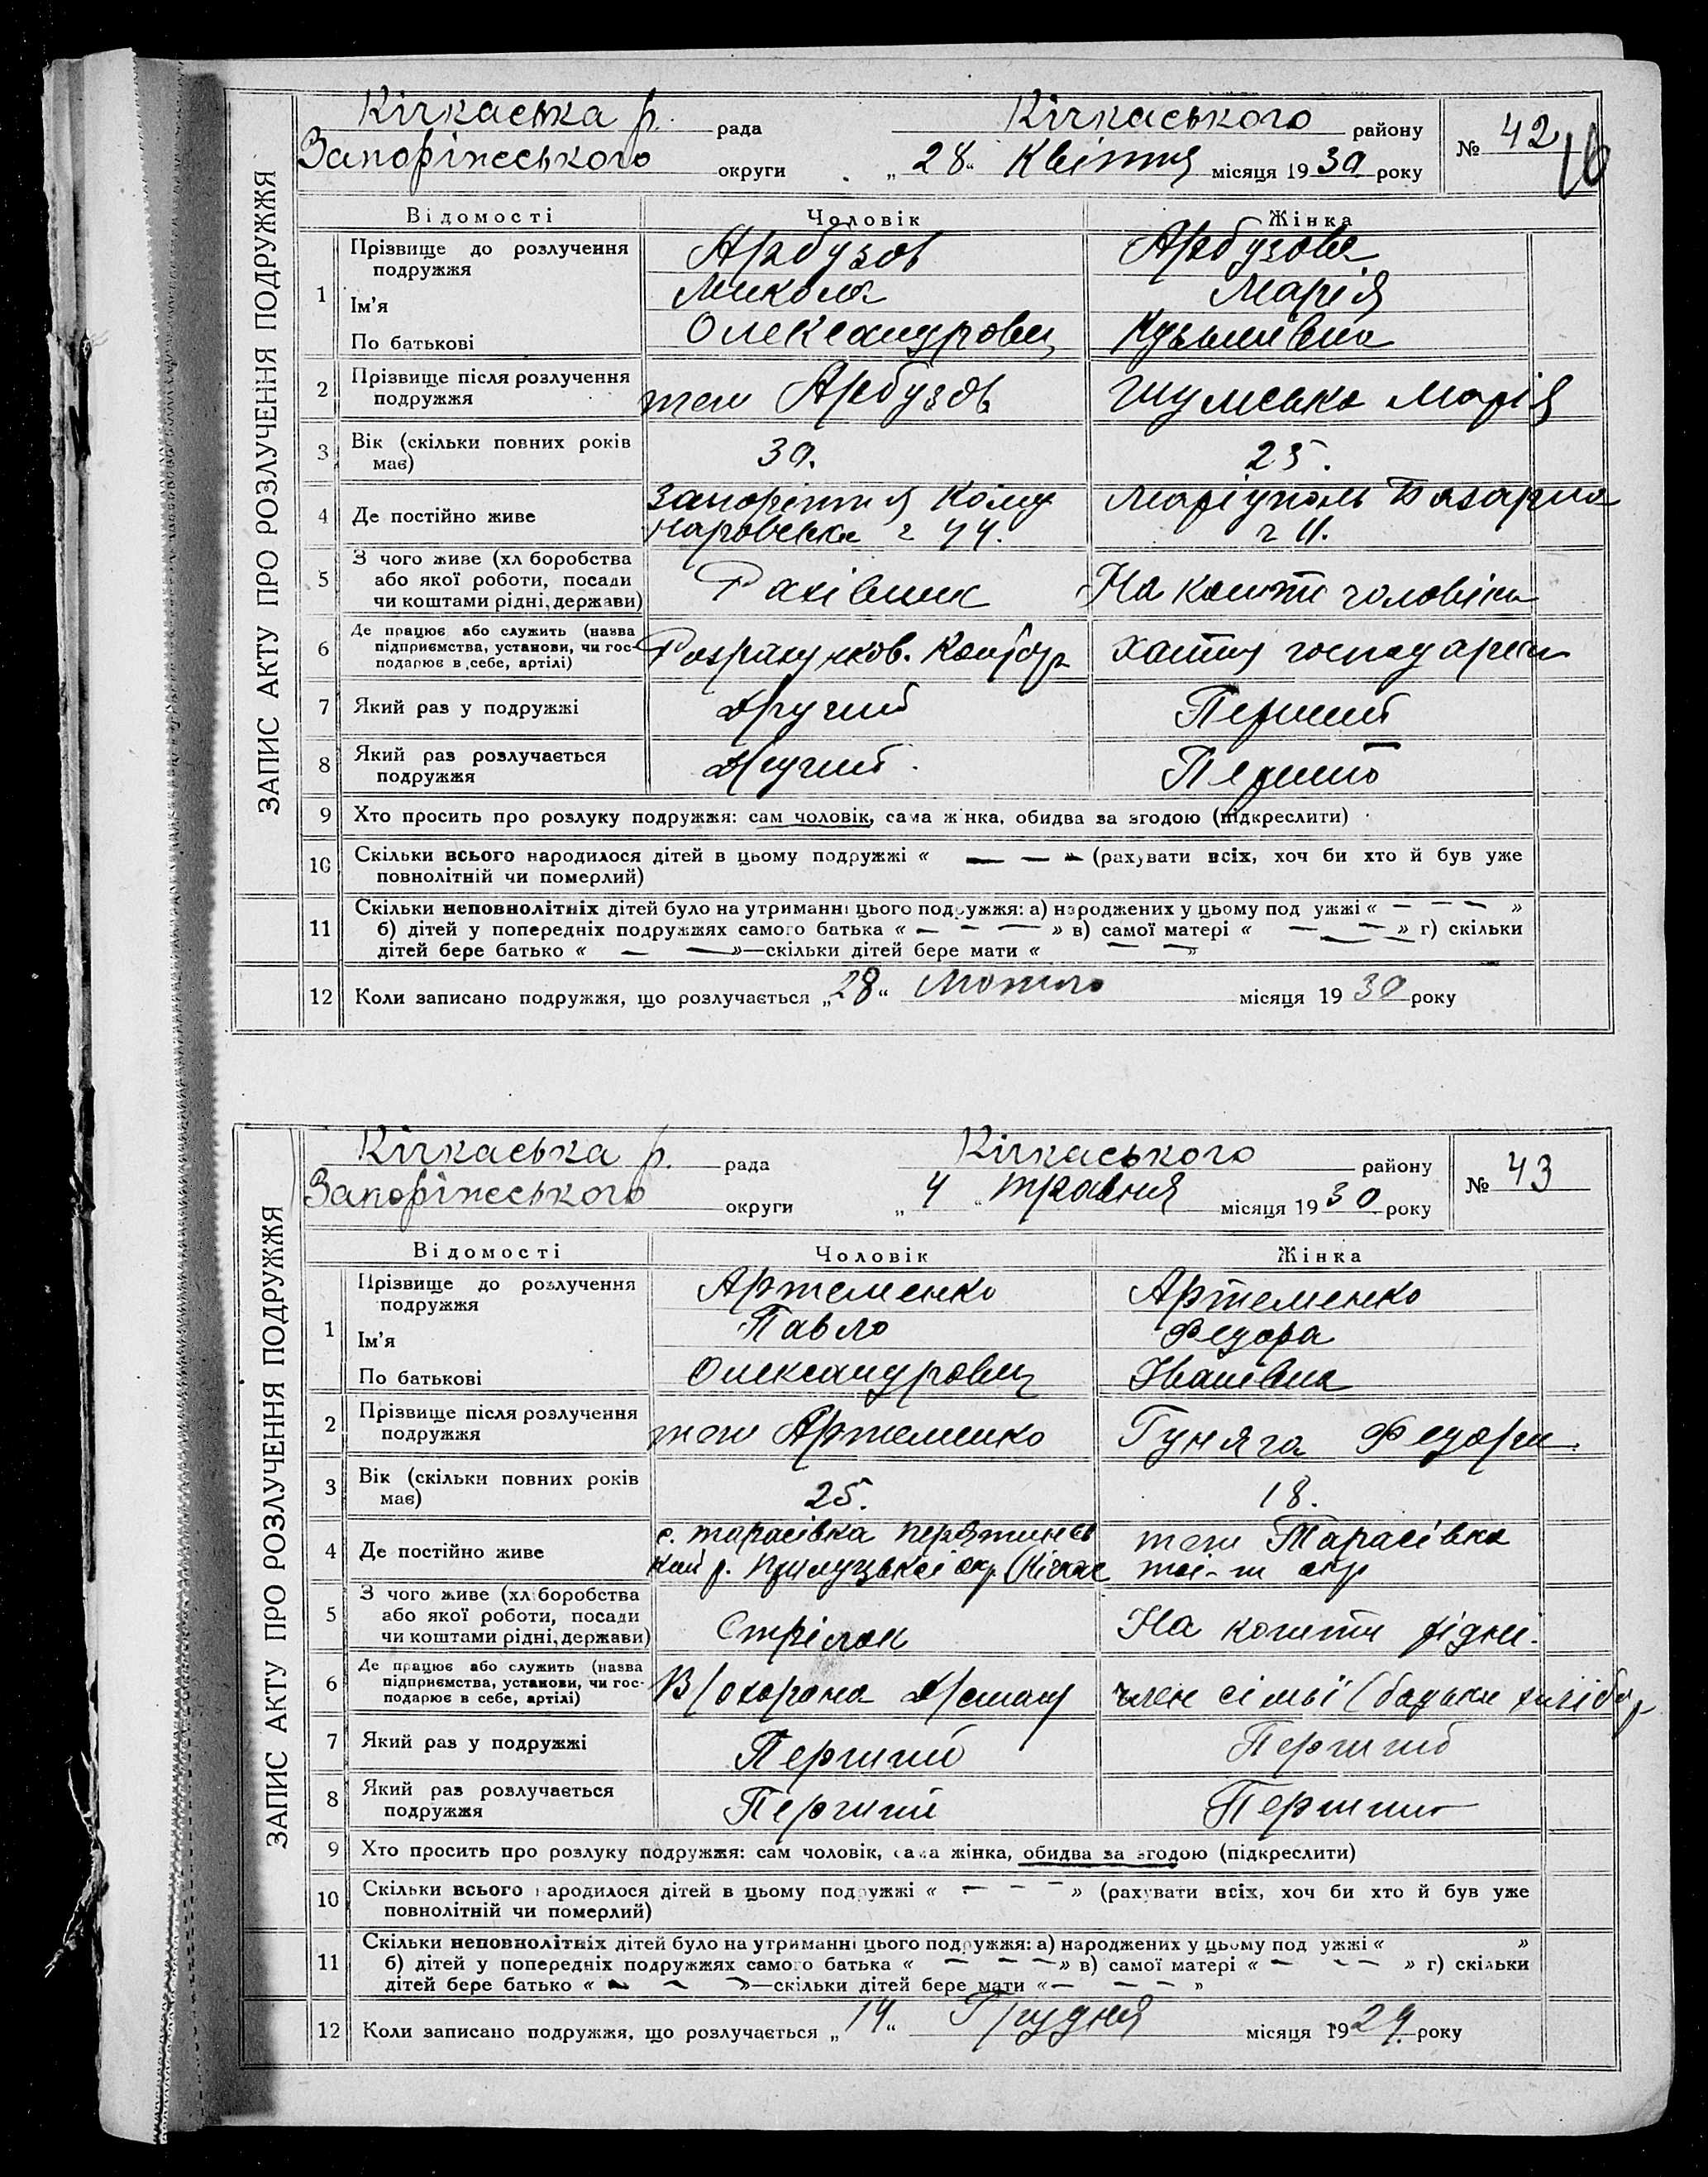 ЗАПИС АКТУ ПРО РОЗЛУЧЕННЯ ПОДРУЖЖЯ
Кічкаська р. рада Кічкаського району № 42
Запоріжського округи „28“ Квітня місяця 1930 року
Відомості Чоловік Жінка
1 Прізвище до розлучення подружжя Арбузов Арбузова
Ім'я Микола Марія
По батькові Олександрович Кузьмівна
2 Прізвище після розлучення подружжя теж Арбузов Шумська Марія
3 Вік (скільки повних років має) 30. 25.
4 Де постійно живе Запоріжжя Кому Маріуполь Базарна
наровська 44. 11.
5 З чого живе (хліборобства
або якої роботи, посади Рахівник На кошти чоловіка
чи коштами рідні, держави)
6 Де працює або служить (назва
підприємства, установи, чи гос- Розрахунков. Контор Хатня господарка
подарює в себе, артілі)
7 Який раз у подружжі Другий Перший
8 Який раз розлучається подружжя Другий. Перший
9 Хто просить про розлуку подружжя: сам чоловік, сама жінка, обидва за згодою (підкреслити)
10 Скільки всього народилося дітей в цьому подружжі « — — » (рахувати всіх, хоч би хто й був уже
повнолітній чи померлий)
11 Скільки неповнолітніх дітей було на утриманні цього подружжя: а) народжених у цьому подружжі « — — — »
б) дітей у попередніх подружжях самого батька « — — — » в) самої матері « — — » г) скільки
дітей бере батько « — — »—скільки дітей бере мати « — — »
12 Коли записано подружжя, що розлучається „28“ Лютого місяця 1930 року
ЗАПИС АКТУ ПРО РОЗЛУЧЕННЯ ПОДРУЖЖЯ
Кічкаська р. рада Кічкаського району № 43
Запоріжського округи „4“ травня місяця 1930 року
Відомості Чоловік Жінка
1 Прізвище до розлучення подружжя Артеменко Артеменко
Ім'я Павло Федора
По батькові Олександрович Іванівна
2 Прізвище після розлучення подружжя теж Артеменко Гуняга Федора
3 Вік (скільки повних років має) 25. 18.
4 Де постійно живе с. Тарасівка Пирятинсь теж Тарасівка
кий р. Прилуцької окр. (Кічкас тої-ж окр
5 З чого живе (хліборобства
або якої роботи, посади Стрілок На кошти рідні.
чи коштами рідні, держави)
6 Де працює або служить (назва
підприємства, установи, чи гос- В/охорона член сімьї (батьки хлібор
подарює в себе, артілі)
7 Який раз у подружжі Перший Перший
8 Який раз розлучається подружжя Перший Перший
9 Хто просить про розлуку подружжя: сам чоловік, сама жінка, обидва за згодою (підкреслити)
10 Скільки всього народилося дітей в цьому подружжі « — — — » (рахувати всіх, хоч би хто й був уже
повнолітній чи померлий)
11 Скільки неповнолітніх дітей було на утриманні цього подружжя: а) народжених у цьому подружжі « »
б) дітей у попередніх подружжях самого батька « — — — » в) самої матері « — — — » г) скільки
дітей бере батько « — — — »—скільки дітей бере мати « — — — »
12 Коли записано подружжя, що розлучається „14“ Грудня місяця 1929. року